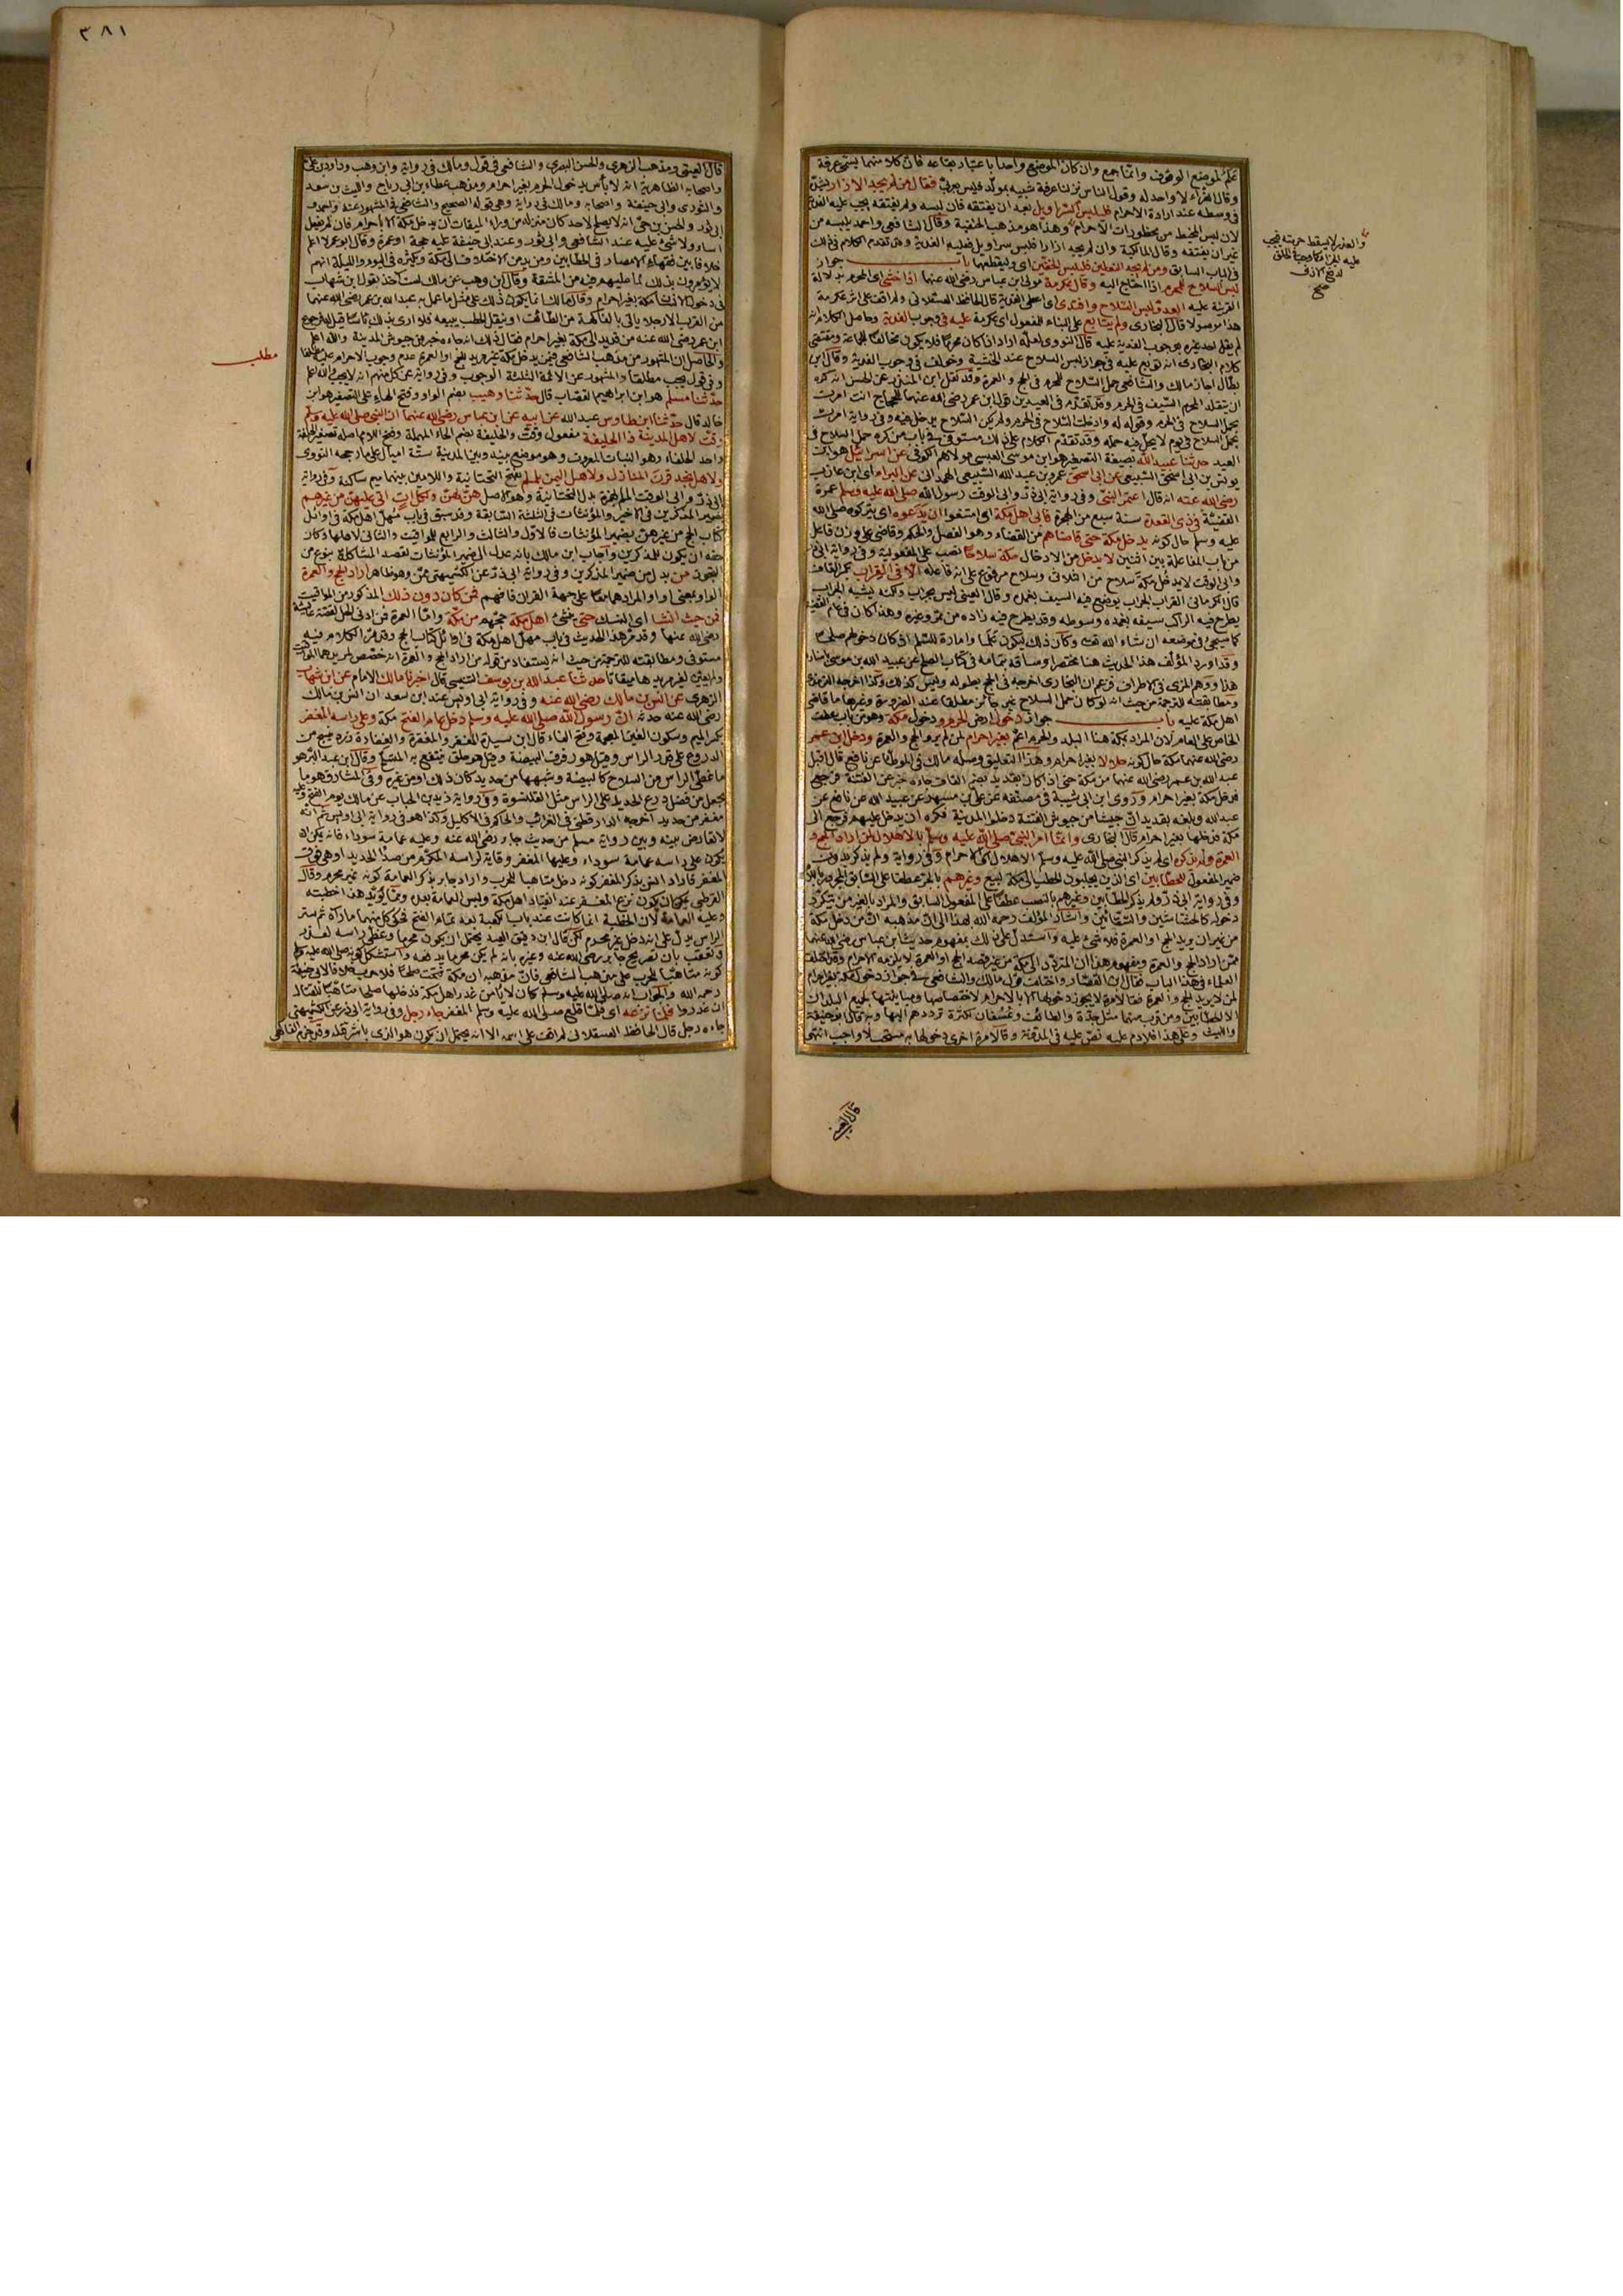 ٣٨١
علم لموضع الوقوف وانما جمع وان كان الموضع واحدا باعتبار بقاعه فان كلا منها يسمى عرفة
وقال الفراء لا واحد له وقول الناس نزلنا عرفة شبيه بمولد فليس بعربي فقال من لم يجد الازار يشده
في وسطه عند ارادة الاحرام فليلبس السراويل بعد ان يفتقه فان لبسه ولم يفتقه يجب عليه الفدية
لان لبس المخيط من محظورات الاحرام وهذا هو مذهب الحنفية وقال الشافعي واحمد يلبسه من
غير ان يفتقه وقال المالكية وان لم يجد ازارا فلبس سراويل فعليه الفدية وقد تقدم الكلام في ذلك
في الباب السابق ومن لم يجد النعلين فليلبس الخفين اى وليقطعهما باب جواز
لبس السلاح للمحرم اذا احتاج اليه وقال عكرمة مولى ابن عباس رضي الله عنهما اذا خشي اى المحرم بدلالة
القرينة عليه العدو لبس السلاح وافتدى اى اعطى الفدية قال الحافظ العسقلاني ولم اقف على اثر عكرمة
هذا موصولا قال البخارى ولم يتابع على البناء للمفعول اى عكرمة عليه في وجوب الفدية وحاصل الكلام انه
لم يقل احد غيره بوجوب الفدية عليه قال النووى لعله اراد اذا كان محرما فلا يكون مخالفا للجماعة ومقتضى
كلام البخارى انه توبع عليه في جواز لبس السلاح عند الخشية وخولف في وجوب الفدية وقال ابن
بطال اجاز مالك والشافعي حمل السلاح للمحرم في الحج والعمرة وقد نقل ابن المنذر عن الحسن انه كره
ان يتقلد المحرم السيف في الحرم وقد تقدم في العيدين قول ابن عمر رضي الله عنهما للحجاج انت امرت
بحمل السلاح في الحرم وقوله له وادخلت السلاح في الحرم ولم يكن السلاح يدخل فيه وفي رواية امرت
بحمل السلاح في يوم لا يحل فيه حمله وقد تقدم الكلام على ذلك مستوفى في باب من كره حمل السلاح في
العيد حدثنا عبيد الله بصيغة التصغير هو ابن موسى العبسى مولاهم الكوفي عن اسرائيل هو ابن
يونس بن ابى اسحق السبيعي عن ابى اسحق عمرو بن عبد الله السبيعي الهمداني عن البراء اى ابن عازب
رضي الله عنه انه قال اعتمر النبي وفي رواية ابى ذر وابى الوقت رسول الله صلى الله عليه وسلم عمرة
القضية في ذى القعدة سنة سبع من الهجرة فابى اهل مكة اى امتنعوا ان يدعوه اى يتركوه صلى الله
عليه وسلم حال كونه يدخل مكة حتى قاضاهم من القضاء وهو الفصل والحكم وقاضى على وزن فاعل
من باب المفاعلة بين اثنين لا يدخل من الادخال مكة سلاحا نصب على المفعولية وفي رواية ابى ذر
وابى الوقت لا يدخل مكة سلاح من الثلاثى وسلاح مرفوع على انه فاعله الا في القراب بكسر القاف
قال الكرماني القراب الجراب يوضع فيه السيف بغمده وقال العيني ليس بجراب ولكنه يشبه الجراب
يطرح فيه الراكب سيفه بغمده وسوطه وقد يطرح فيه زاده من تمر وغيره وهذا كان في عام القضية
كما سيجئ في موضعه ان شاء الله تعالى وكان ذلك ليكون علما وامارة للسلم اذ كان دخولهم صلحا
وقد اورد المؤلف هذا الحديث هنا مختصرا وساقه بتمامه في كتاب الصلح عن عبيد الله بن موسى باسناده
هذا ووهم المزى في الاطراف فزعم ان البخارى اخرجه في الحج بطوله وليس كذلك وكذا اخرجه الترمذى
ومطابقته للترجمة من حيث انه لو كان حمل السلاح غير جائز مطلقا عند الضرورة وغيرها ما قاضى
اهل مكة عليه باب جواز دخول ارض الحرم ودخول مكة وهو من باب عطف
الخاص على العام لان المراد بمكة هنا البلد والحرم اعم بغير احرام لمن لم يرد الحج والعمرة ودخل ابن عمر
رضي الله عنهما مكة حال كونه حلالا بغير احرام وهذا التعليق وصله مالك في الموطأ عن نافع قال اقبل
عبد الله بن عمر رضي الله عنهما من مكة حتى اذا كان بقديد بضم القاف جاءه خبر عن الفتنة فرجع
فدخل مكة بغير احرام وروى ابن ابى شيبة في مصنفه عن على بن مسهر عن عبيد الله عن نافع عن
عبد الله وبلغه بقديد ان جيشا من جيوش الفتنة دخلوا المدينة فكره ان يدخل عليهم فرجع الى
مكة فدخلها بغير احرام قال البخارى وانما امر النبي صلى الله عليه وسلم بالاهلال لمن اراد الحج و
العمرة ولم يذكره اى لم يذكر النبي صلى الله عليه وسلم الاهلال اى الاحرام وفي رواية ولم يذكر بدون
ضمير المفعول للحطابين اى الذين يجلبون الحطب الى مكة للبيع وغيرهم بالجر عطفا على السابق المجرور باللام
وفي رواية ابى ذر ولم يذكر الحطابين وغيرهم بالنصب عطفا على المفعول السابق والمراد بالغير من يتكرر
دخوله كالحشاشين والسقائين واشار المؤلف رحمه الله بهذا الى ان مذهبه ان من دخل مكة
من غير ان يريد الحج او العمرة فلا شئ عليه واستدل على ذلك بمفهوم حديث ابن عباس رضي الله عنهما
ممن اراد الحج والعمرة ومفهوم هذا ان المتردد الى مكة من غير قصد الحج او العمرة لا يلزمه الاحرام وقد اختلف
العلماء في هذا الباب فقال ابن القصار واختلف قول مالك والشافعي في جواز دخول مكة بغير احرام
لمن لا يريد الحج والعمرة فقالا مرة لا يجوز دخولها الا بالاحرام لاختصاصها ومباينتها جميع البلدان
الا الحطابين ومن قرب منها مثل جدة والطائف وعسفان لكثرة ترددهم اليها وبه قال ابو حنيفة
والليث وعلى هذا فلا دم عليه نص عليه في المدونة وقالا مرة اخرى دخولها به مستحب لا واجب انتهى
والعذر لا يسقط حرمته فيجب
عليه الجزاء كما وجب في الحلق
لدفع الاذى
صح
قال العيني
قال العيني ومذهب الزهرى والحسن البصرى والشافعي في قول ومالك في رواية وابن وهب وداود بن على
واصحابه الظاهرية انه لا بأس بدخول الحرم بغير احرام ومذهب عطاء بن ابى رباح والليث بن سعد
والثورى وابى حنيفة واصحابه ومالك في رواية وهى قوله الصحيح والشافعي في المشهور عنه واحمد و
ابى ثور والحسن بن حى انه لا يصلح لاحد كان منزله من وراء الميقات ان يدخل مكة الا باحرام فان لم يفعل
اساء ولا شئ عليه عند الشافعي وابى ثور وعند ابى حنيفة عليه حجة او عمرة وقال ابو عمر لا اعلم
خلافا بين فقهاء الامصار في الحطابين ومن يدمن الاختلاف الى مكة ويكثره في اليوم والليلة انهم
لا يؤمرون بذلك لما عليهم فيه من المشقة وقال ابن وهب عن مالك لست آخذ بقول ابن شهاب
في دخول الانسان مكة بغير احرام وقال مالك انما يكون ذلك على مثل ما عمل به عبد الله بن عمر رضي الله عنهما
من القرب الا رجلا يأتي بالفاكهة من الطائف او ينقل الحطب يبيعه فلا ارى بذلك بأسا قيل له فرجوع
ابن عمر رضي الله عنه من قديد الى مكة بغير احرام فقال ذلك انه جاءه خبر من جيوش المدينة والله اعلم
والحاصل ان المشهور من مذهب الشافعي فيمن يدخل مكة غير مريد للحج او العمرة عدم وجوب الاحرام عليه مطلقا
وفي قول يجب مطلقا والمشهور عن الائمة الثلاثة الوجوب وفي رواية عن كل منهم انه لا يجب والله اعلم
حدثنا مسلم هو ابن ابراهيم القصاب قال حدثنا وهيب بضم الواو وفتح الهاء على التصغير هو ابن
خالد قال حدثنا ابن طاوس عبد الله عن ابيه عن ابن عباس رضي الله عنهما ان النبي صلى الله عليه وسلم
وقت لاهل المدينة ذا الحليفة مفعول وقت والحليفة بضم الحاء المهملة وفتح اللام اصله تصغير الحلفة
واحد الحلفاء وهو النبات المعروف وهو موضع بينه وبين المدينة ستة اميال على ما رجحه النووى
ولاهل نجد قرن المنازل ولاهل اليمن يلملم بفتح التحتانية واللامين بينهما ميم ساكنة وفي رواية
ابى ذر وابى الوقت الملم بهمزة بدل التحتانية وهو الاصل هن لهن ولكل آت اتى عليهن من غيرهم
بضمير المذكرين في الاخير والمؤنثات في الثلثة السابقة وقد سبق في باب مهل اهل مكة في اوائل
كتاب الحج من غيرهن بضمير المؤنثات فالاول والثالث والرابع للمواقيت والثاني لاهلها وكان
حقه ان يكون للمذكرين واجاب ابن مالك بانه عدل الى ضمير المؤنثات لقصد المشاكلة
من بدل من ضمير المذكرين وفي رواية ابى ذر عن الكشميهني ممن وهو ظاهر اراد الحج والعمرة
الواو بمعنى او او المراد هما معا على جهة القران فافهم فمن كان دون ذلك المذكور من المواقيت
فمن حيث انشأ اى النسك حتى ينشئ اهل مكة حجهم من مكة واما العمرة فمن ادنى الحل لقصة عائشة
رضي الله عنها وقد مر هذا الحديث في باب مهل اهل مكة في اوائل كتاب الحج وقد مر الكلام فيه
مستوفى ومطابقته للترجمة من حيث انه يستفاد من قوله من اراد الحج والعمرة انه خصص لمريدهما المواقيت
ولم يعين لغير مريدها ميقاتا حدثنا عبد الله بن يوسف التنيسى قال اخبرنا مالك الامام عن ابن شهاب
الزهرى عن انس بن مالك رضي الله عنه وفي رواية ابى اويس عند ابن سعد ان انس بن مالك
رضي الله عنه حدثه ان رسول الله صلى الله عليه وسلم دخل عام الفتح مكة وعلى رأسه المغفر
بكسر الميم وسكون الغين المعجمة وفتح الفاء قال ابن سيدة المغفر والمغفرة والغفارة زرد ينسج من
الدروع على قدر الراس وقيل هو رفرف البيضة وقيل هو حلق يتقنع به المتسلح وقال ابن عبد البر هو
ما غطى الراس من السلاح كالبيضة وشبهها من حديد كان ذلك او من غيره وفي المشارق هو ما
يجعل من فضل درع الحديد على الراس مثل القلنسوة وفي رواية زيد بن الحباب عن مالك يوم الفتح وعليه
مغفر من حديد اخرجه الدارقطني في الغرائب والحاكم في الاكليل وكذا هو في رواية ابى اويس ثم انه
لا تعارض بينه وبين رواية مسلم من حديث جابر رضي الله عنه وعليه عمامة سوداء فانه يمكن ان
يكون على راسه عمامة سوداء وعليها المغفر وقاية لراسه المكرم من صدأ الحديد او هى فوق
المغفر فاراد انس بذكر المغفر كونه دخل متأهبا للحرب واراد جابر بذكر العمامة كونه غير محرم وقال
القرطبي يمكن ان يكون نزع المغفر عند انقياد اهل مكة ولبس العمامة بعده ومما يؤيد هذا خطبته
وعليه العمامة لان الخطبة انما كانت عند باب الكعبة بعد تمام الفتح فحكى كل منهما ما رآه ثم ستر
الراس يدل على انه دخل غير محرم لكن قال ابن دقيق العيد يحتمل ان يكون محرما وغطى راسه لعذر
وتعقب بان تصريح جابر رضي الله عنه وغيره بانه لم يكن محرما يدفعه واستشكل كونه صلى الله عليه وسلم
كونه متأهبا للحرب على مذهب الشافعي فان مذهبه ان مكة فتحت صلحا خلافا لابى حنيفة
رحمه الله والجواب انه صلى الله عليه وسلم كان لا يأمن غدر اهل مكة فدخلها صلحا متأهبا للقتال
ان غدروا فلما نزعه اى فلما قلع صلى الله عليه وسلم المغفر جاء رجل وفي رواية ابى ذر عن الكشميهني
جاءه رجل قال الحافظ العسقلاني لم اقف على اسمه الا انه يحتمل ان يكون هو الذى باشر قتله وقد جزم الفاكهى
مطلب